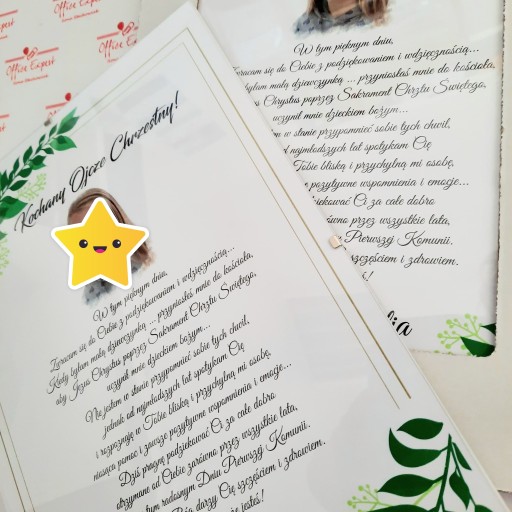 Office Expert
Office Expert
Office Expert
Kochany Ojcze Chrzestny!
W tym pięknym dniu,
Zwracam się do Ciebie z podziękowaniem i wdzięcznością...
Kiedy byłam małą dziewczynką ... przyniosłaś mnie do kościoła,
aby Jezus Chrystus poprzez Sakrament Chrztu Świętego,
uczynił mnie dzieckiem bożym...
Nie jestem w stanie przypomnieć sobie tych chwil,
jednak od najmłodszych lat spotykam Cię
i rozpoznaję w Tobie bliską i przychylną mi osobę,
niosącą pomoc i zawsze pozytywne wspomnienia i emocje...
Dziś pragnę podziękować Ci za całe dobro
otrzymane od Ciebie zarówno przez wszystkie lata,
tym radosnym Dniu Pierwszej Komunii.
darzy Cię szczęściem i zdrowiem.
jesteś!
W tym pięknym dniu,
Zwracam się do Ciebie z podziękowaniem i wdzięcznością...
byłam małą dziewczynką ... przyniosłaś mnie do kościoła,
Chrystus poprzez Sakrament Chrztu Świętego,
uczynił mnie dzieckiem bożym...
w stanie przypomnieć sobie tych chwil,
najmłodszych lat spotykam Cię
Tobie bliską i przychylną mi osobę,
pozytywne wspomnienia i emocje...
Ci za całe dobro
przez wszystkie lata,
Pierwszej Komunii.
szczęściem i zdrowiem.